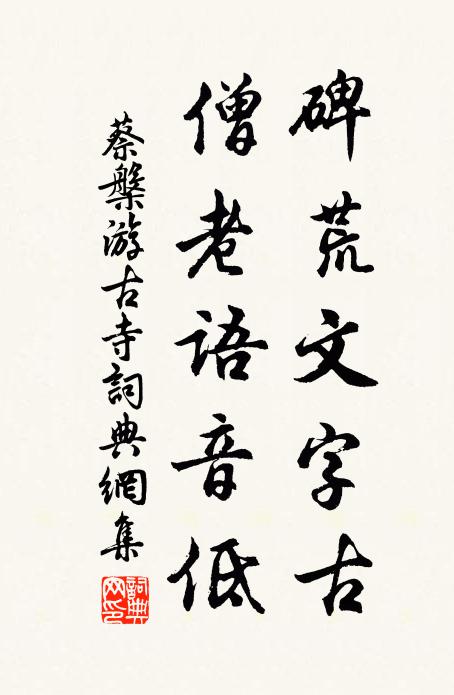 碑荒文字古
僧老語音低
蔡槃游古寺詞典網集
詞典网印